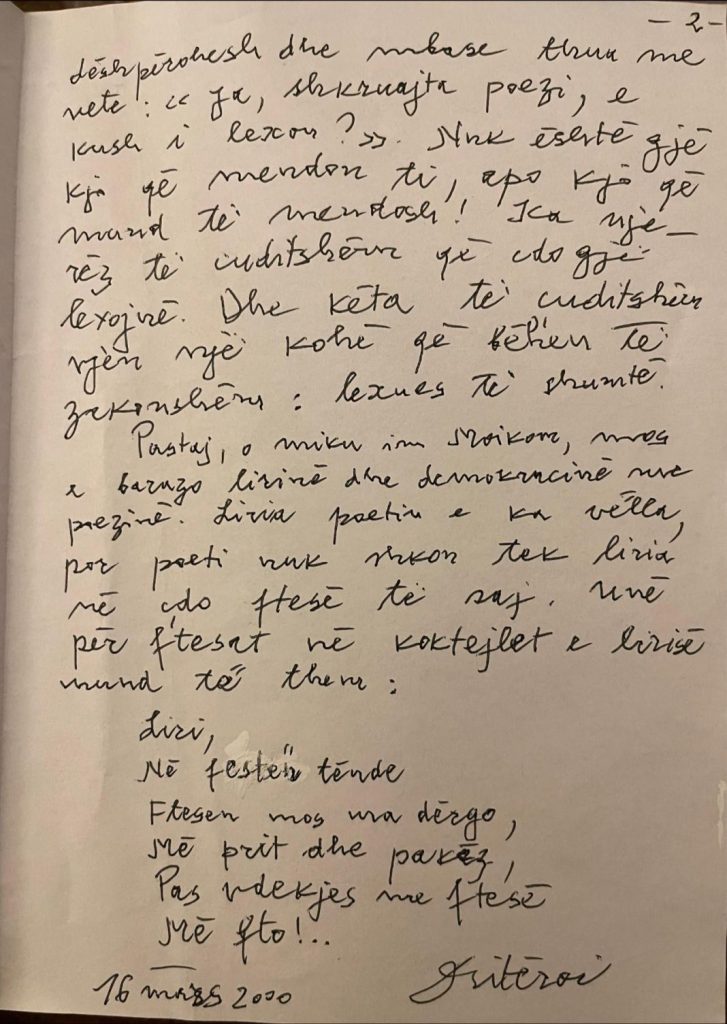 - 2 -
dëshpërohesh dhe mbase thua me
vete: « Ja, shkruajta poezi, e
kush i lexon? ». Nuk është gjë
kjo që mendon ti, apo kjo që
mund të mendosh! Ka nje-
rëz të çuditshëm që çdo gjë
lexojnë. Dhe këta të çuditshëm
vjen një kohë që bëhen të
zakonshëm: lexues të shumtë.
Pastaj, o miku im, mos
e barazo lirinë dhe demokracinë me
poezinë. Liria poetin e ka vëlla,
por poeti nuk shkon tek liria
në çdo ftesë të saj. Unë
për ftesat në koktejlet e lirisë
mund të them:
Liri,
Në festën tënde
Ftesën mos ma dërgo,
Më prit dhe pakëz,
Pas vdekjes me ftesë
Më fto!..
16 mars 2000 Dritëroi